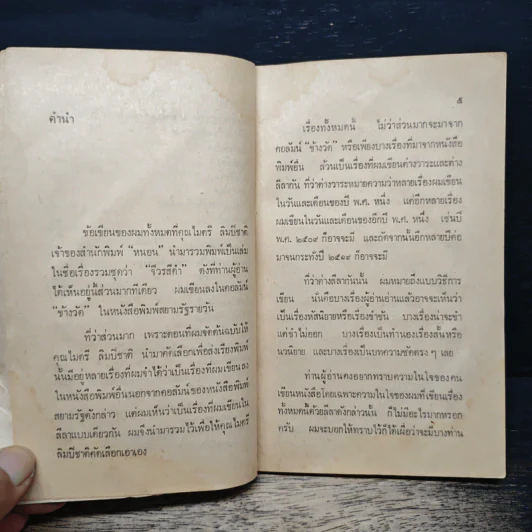 คำนำ
ข้อเขียนของผมทั้งหมดที่คุณไมตรี ลิมปิชาติ
เจ้าของสำนักพิมพ์ "หนอน" นำมารวมพิมพ์เป็นเล่ม
ในชื่อเรื่องรวมชุดว่า "จีวรสีดำ" ดังที่ท่านผู้อ่าน
ได้เห็นอยู่นี้ส่วนมากทีเดียว ผมเขียนลงในคอลัมน์
"ข้างวัด" ในหนังสือพิมพ์สยามรัฐรายวัน
ที่ว่าส่วนมาก เพราะตอนที่ผมจัดต้นฉบับให้
คุณไมตรี ลิมปิชาติ นำมาคัดเลือกเพื่อส่งเรียงพิมพ์
นั้นมีอยู่หลายเรื่องที่ผมจำได้ว่าเป็นเรื่องที่ผมเขียนลง
ในหนังสือพิมพ์อื่นนอกจากคอลัมน์ของหนังสือพิมพ์
สยามรัฐดังกล่าว แต่ผมเห็นว่าเป็นเรื่องที่ผมเขียนใน
ลีลาแบบเดียวกัน ผมจึงนำมารวมไว้เพื่อให้คุณไมตรี
ลิมปิชาติคัดเลือกเอาเอง
๕
เรื่องทั้งหมดนี้ ไม่ว่าส่วนมากจะมาจาก
คอลัมน์ "ข้างวัด" หรือเพียงบางเรื่องที่มาจากหนังสือ
พิมพ์อื่น ล้วนเป็นเรื่องที่ผมเขียนต่างวาระและต่าง
ลีลากัน ที่ว่าต่างวาระหมายความว่าหลายเรื่องผมเขียน
ในวันและเดือนของปี พ.ศ. หนึ่ง แต่อีกหลายเรื่อง
ผมเขียนในวันและเดือนของอีกปี พ.ศ. หนึ่ง เช่นปี
พ.ศ. ๒๕๐๙ ก็อาจจะมี และถัดจากนั้นอีกหลายปีต่อ
มาจนกระทั่งปี ๒๕๑๙ ก็อาจจะมี
ที่ว่าต่างลีลากันนั้น ผมหมายถึงแบบวิธีการ
เขียน นั่นคือบางเรื่องผู้อ่านอ่านแล้วอาจจะเห็นว่า
เป็นเรื่องหัสนิยายหรือเรื่องขำขัน บางเรื่องน่าจะขำ
แต่ขำไม่ออก บางเรื่องเป็นทำนองเรื่องสั้นหรือ
นวนิยาย และบางเรื่องเป็นบทความชัดตรง ๆ เลย
ท่านผู้อ่านคงอยากทราบความในใจของคน
เขียนหนังสือโดยเฉพาะความในใจของผมที่เขียนเรื่อง
ทั้งหมดด้วยลีลาดังกล่าวนั้น ก็ไม่มีอะไรมากหรอก
ครับ ผมจะบอกให้ทราบไว้ก็ได้เผื่อว่าจะมีบางท่าน